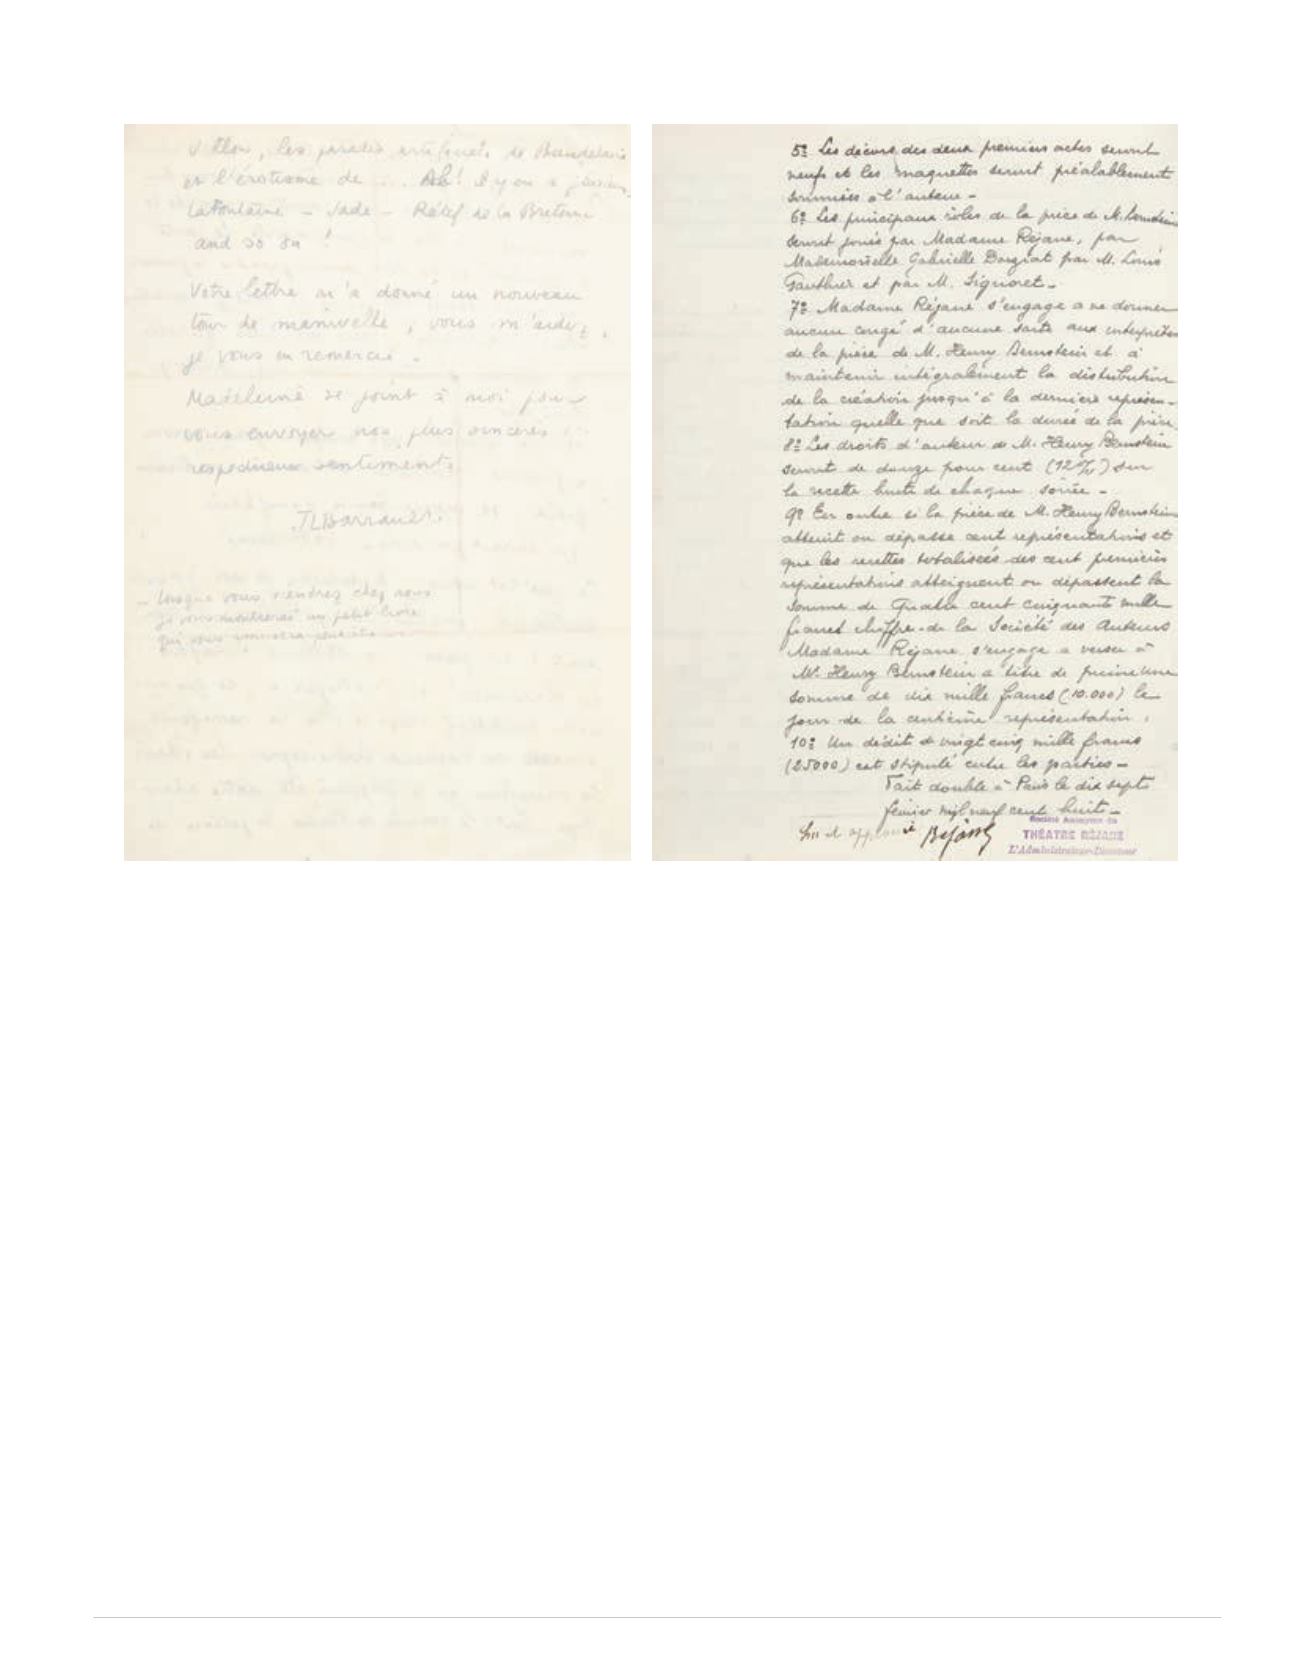 Villon, les paradis artificiels de Baudelaire
et l'érotisme de ... Ah! il y en a plusieurs
Lafontaine - Sade - Rétif de la Bretonne
and so on !
Votre lettre m'a donné un nouveau
tour de manivelle, vous m'aidez,
je vous en remercie.
Madeleine se joint à moi pour
vous envoyer nos plus sincères
respectueux sentiments
JLBarrault.
- Lorsque vous viendrez chez nous
je vous montrerai un petit livre
qui vous
5º Les décors des deux premiers actes seront
neufs et les maquettes seront préalablement
soumises à l'auteur -
6º Les principaux rôles de la pièce de M. Bernstein
seront joués par Madame Réjane, par
Mademoiselle Gabrielle Dorziat par M. Louis
Gauthier et par M. Signoret -
7º Madame Réjane s'engage à ne donner
aucun congé d'aucune sorte aux interprètes
de la pièce de M. Henry Bernstein et à
maintenir intégralement la distribution
de la création jusqu'à la dernière représen-
tation quelle que soit la durée de la pièce
8º Les droits d'auteur de M. Henry Bernstein
seront de douze pour cent (12%) sur
la recette brute de chaque soirée -
9º En outre si la pièce de M. Henry Bernstein
atteint ou dépasse cent représentations et
que les recettes totalisées des cent premières
représentations atteignent ou dépassent la
somme de Quatre cent cinquante mille
francs chiffre de la Société des Auteurs
Madame Réjane s'engage à verser à
Mr Henry Bernstein à titre de prime une
somme de dix mille francs (10.000) le
jour de la centième représentation.
10º Un dédit de vingt cinq mille francs
(25000) est stipulé entre les parties -
Fait double à Paris le dix sept
février mil neuf cent huit -
Lu et approuvé Réjane
Société Anonyme du
THÉATRE RÉJANE
L'Administrateur-Directeur